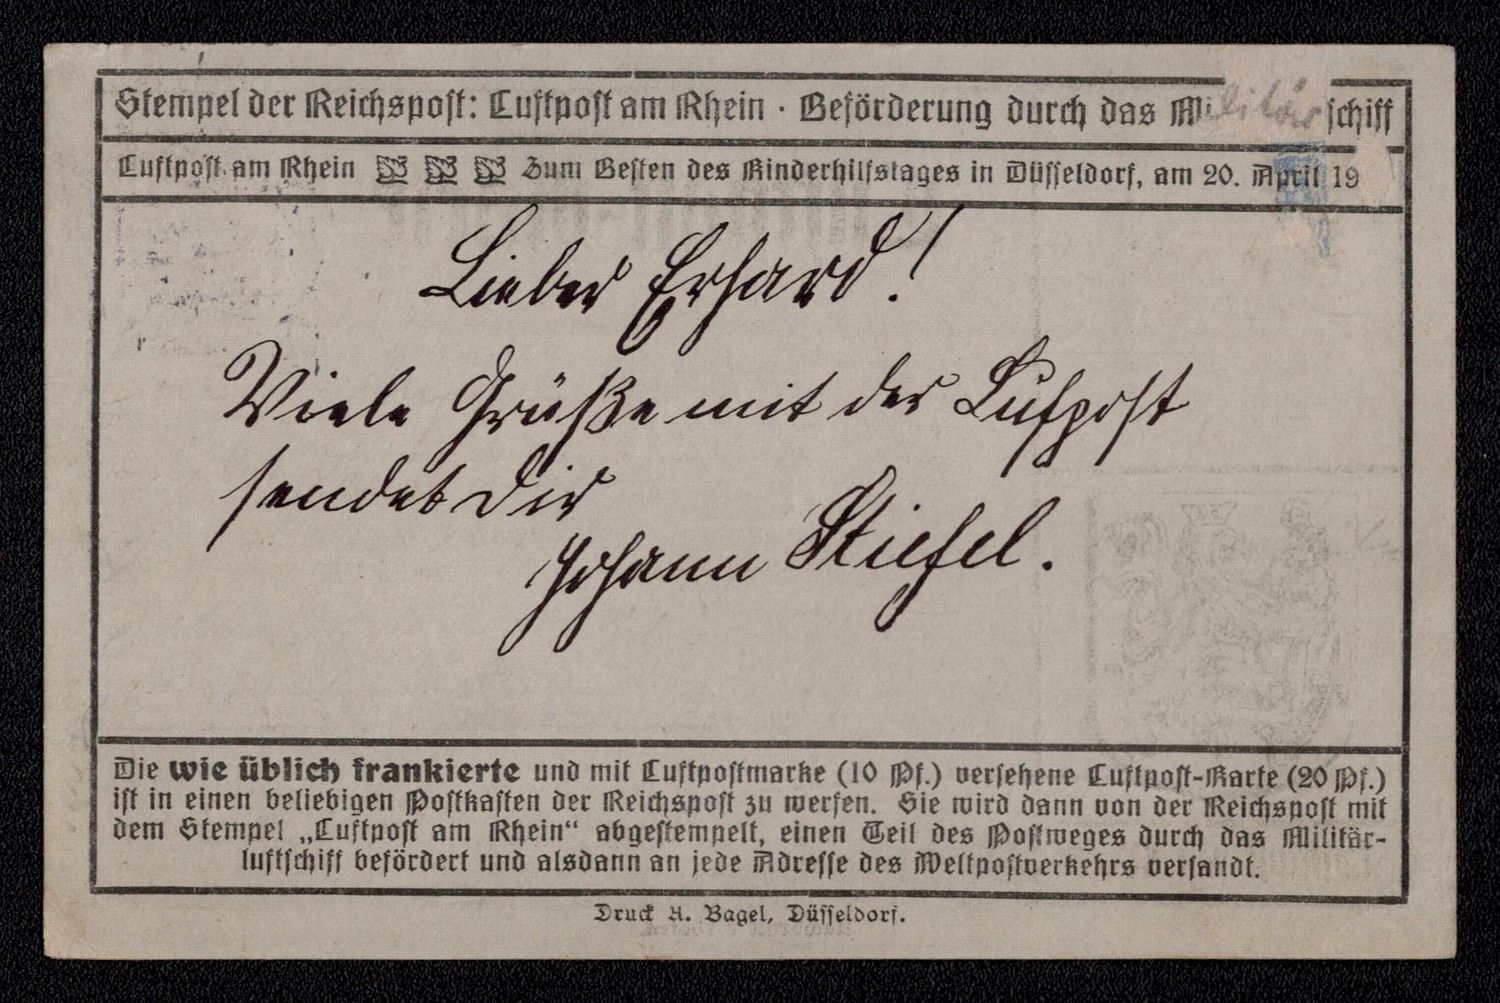 Stempel der Reichspost: Luftpost am Rhein · Beförderung durch das Militär schiff
Luftpost am Rhein Zum Besten des Kinderhilfstages in Düsseldorf, am 20. April 19
Lieber Erhard!
Viele Grüße mit der Lufpost
sendet Dir
Johann Stiefel.
Die wie üblich frankierte und mit Luftpostmarke (10 Pf.) versehene Luftpost-Karte (20 Pf.)
ist in einen beliebigen Postkasten der Reichspost zu werfen. Sie wird dann von der Reichspost mit
dem Stempel „Luftpost am Rhein“ abgestempelt, einen Teil des Postweges durch das Militär-
luftschiff befördert und alsdann an jede Adresse des Weltpostverkehrs versandt.
Druck A. Bagel, Düsseldorf.